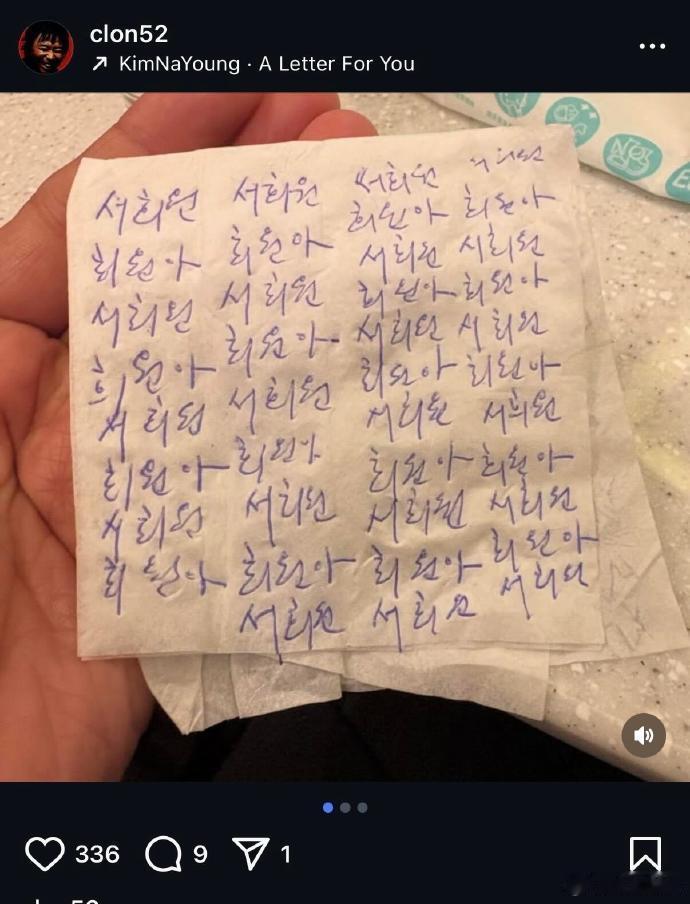 clon52
KimNaYoung · A Letter For You
서희원
희원아
서희원
희원아
서희원
희원아
서희원
희원아
서희원
희원아
서희원
희원아
서희원
희원아
서희원
희원아
서희원
서희원
희원아
서희원
희원아
서희원
희원아
서희원
희원아
서희원
희원아
서희원
서희원
희원아
서희원
희원아
서희원
희원아
서희원
희원아
서희원
희원아
서희원
336 9 1